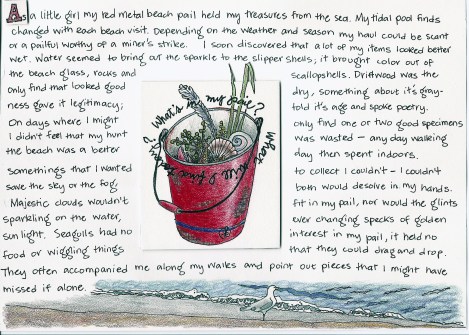 As a little girl my red metal beach pail held my treasures from the sea. My tidal pool finds
changed with each beach visit. Depending on the weather and season my haul could be scant
or a pailful worthy of a miner's strike. I soon discovered that a lot of my items looked better
wet. Water seemed to bring out the sparkle to the slipper shells; it brought color out of
the beach glass, rocks and scallopshells. Driftwood was the
only find that looked good dry, something about it's gray-
ness gave it legitimacy; told it's age and spoke poetry.
On days where I might only find one or two good specimens
I didn't feel that my hunt was wasted – any day walking
the beach was a better day then spent indoors.
somethings that I wanted to collect I couldn't – I couldn't
save the sky or the fog, both would desolve in my hands.
Majestic clouds wouldn't fit in my pail, nor would the glints
sparkling on the water, ever changing specks of golden
sunlight. Seagulls had no interest in my pail, it held no
food or wiggling things that they could drag and drop.
They often accompanied me along my walks and point out pieces that I might have
missed if alone.
What's in my pail?
What will I find today?